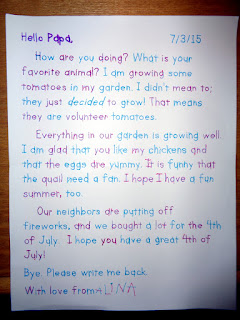 Hello Papa,
7/3/15
How are you doing? What is your
favorite animal? I am growing some
tomatoes in my garden. I didn't mean to;
they just decided to grow! That means
they are volunteer tomatoes.
Everything in our garden is growing well.
I am glad that you like my chickens and
that the eggs are yummy. It is funny that
the quail need a fan. I hope I have a fun
summer, too.
Our neighbors are putting off
fireworks, and we bought a lot for the 4th
of July. I hope you have a great 4th of
July!
Bye. Please write me back.
With love from: LINA